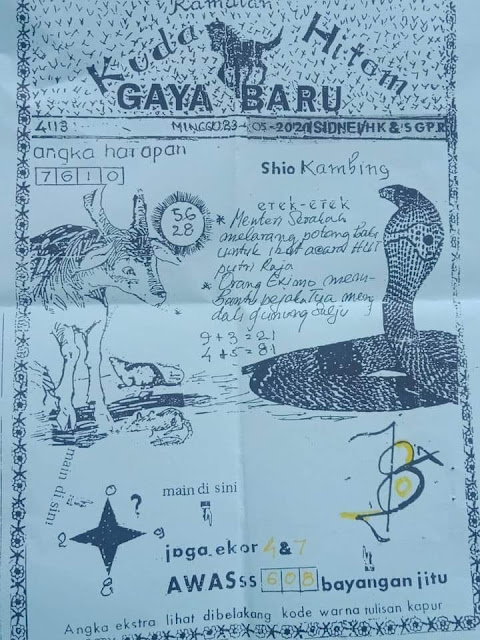 Ramalan
Kuda Hitam
GAYA BARU
4113 MINGGU 23-05-2021 SIDNEI/HK & SGPR
angka harapan
7610
Shio Kambing
56
28
erek-erek
* Menteri Seralah
melarang potong babi
untuk ikut acara HUT
putri Raja
* Orang Exsimo mem-
bantu
dali gunung salju
9 + 3 = 21
4 + 5 = 81
main di sini
main di sini
0
?
2
9
8
jaga ekor 4 & 7
AWASss 608 bayangan jitu
Angka ekstra lihat dibelakang kode warna tulisan kapur